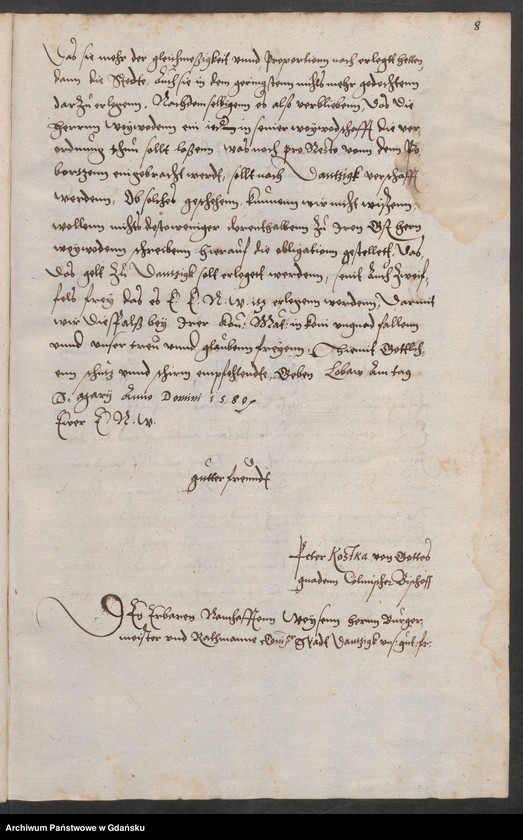 8
Das sie mehr der gleichmeßigkeit vnnd Proportionn nach erlegtt hetten,
dann die Stedte, Auch sie in dem geringstenn nichts mehr gedochtenn
darzu erlegenn, Nachdem selbigem es also verbliebenn, Das die
herrnn Woywodenn ein in seiner woywodschafft die ver,
ordnung thun sollt laßenn, was noch pro Resto vonn dem
bortzenn eingebracht werdt, sollt nach Dantzigk verschafft
werdenn, Ob solches geschehenn, kunnenn wir nicht wißenn,
wollenn nichts destoweniger derenthalbenn zu Iren hern
woywodenn schreibenn hierauf die obligationn gestellett, Das
Das gelt zu Dantzigk soll erlegett werdenn, seint Auch zweif,
fels frey das es E. E. N. W. itz erlegenn werdenn, Darmit
wir Dießfalß bey Irer Kön: Mat: in kein vngnad fallenn
vnnd vnser treu vnnd glaubenn freyenn. Hiemit Gottlich,
enn schutz vnnd schirm empfehlendt, Geben Lobaw Am tag
S. Anno Domini 1580
Ewer E. N. W.
gutter freundt
Peter Kostka von Gottes
gnadenn Colmischer Bischoff
Den Erbaren Namhafftenn Weysenn herrnn Burger,
meister vnd Rathmanne Stadt Dantzigk vns: gut: fr:
Archiwum Państwowe w Gdańsku